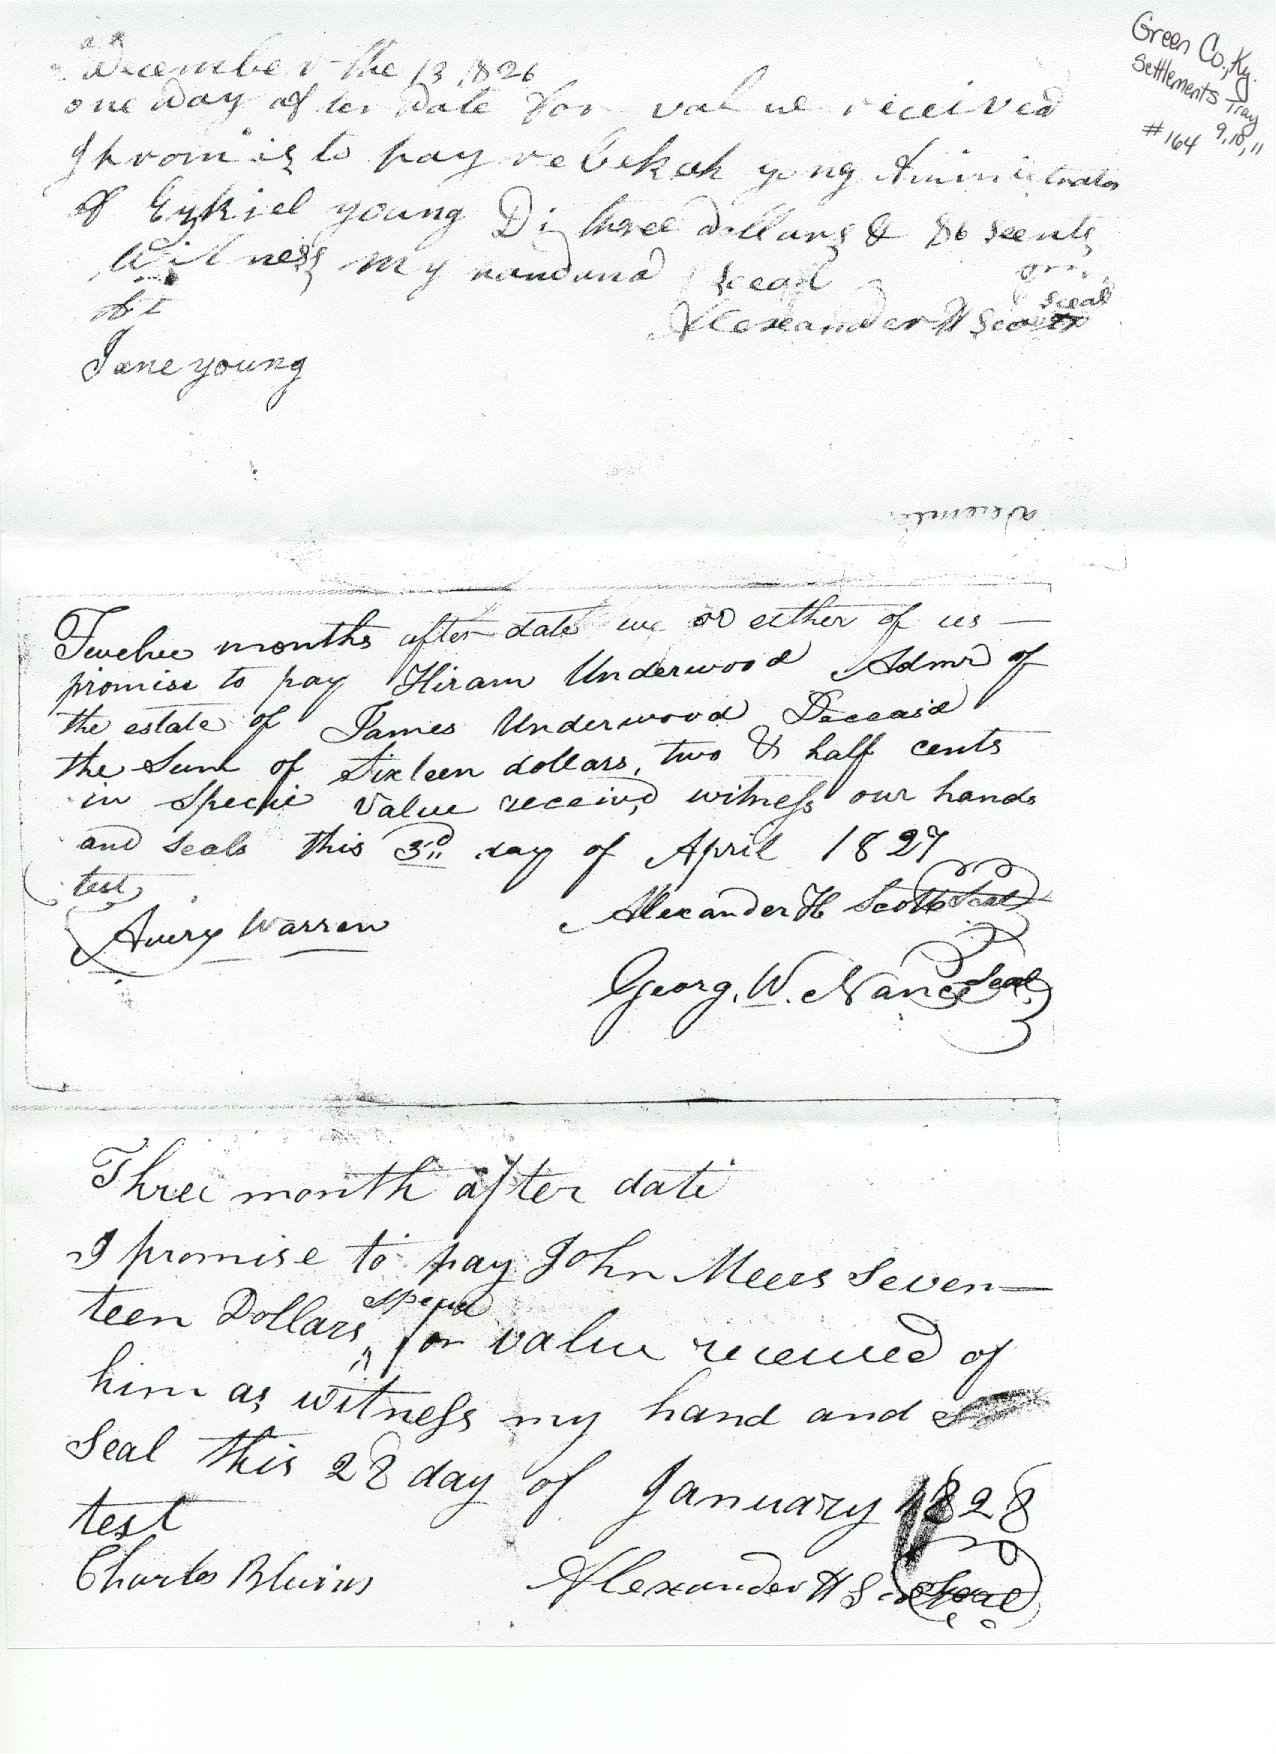 Green Co., Ky.
Settlements Tray
9, 10, 11
#164
December the 13 1826
one Day after Date for value received
I promis to pay rebekah yong Aministrator
of Ezkiel young De three dollars & 86 scents
Witness my hand and sceal
At
Alexander H Scott sceal
Jane young
Decemb
Twelve months after date we or either of us —
promise to pay Hiram Underwood Admr of
the estate of James Underwood Deceasd
the Sum of Sixteen dollars, two & half cents
in Specie Value received witness our hands
and seals this 3rd day of April 1827
test
Avery Warren
Alexander H Scott Seal
Georg. W. Nance Seal
Three month after date
I promise to pay John Mees Seven—
teen Dollars specia for value received of
him as witness my hand and
Seal this 28 day of January 1828
test
Charles Blevins
Alexander H Scott Seal